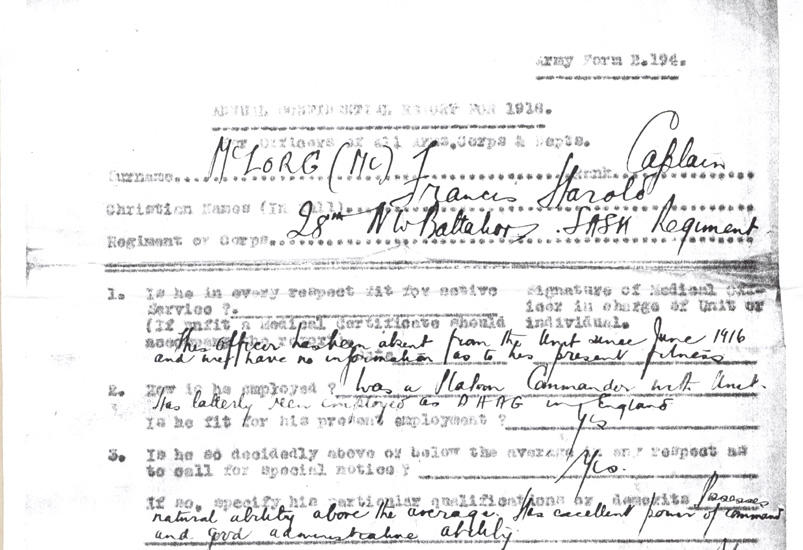 Army Form B.194.
ANNUAL CONFIDENTIAL REPORT FOR 1918.
For Officers of all Arms, Corps & Depts.
Surname... McLORG (MC) F Rank. Captain
Christian Names (In full).. Francis Harold
Regiment or Corps.. 28th NW Battalion. SASK Regiment
1. Is he in every respect fit for active Signature of Medical Off-
Service ?. icer in charge of Unit or
(If unfit a Medical Certificate should individual.
This officer has been absent from the Unit since June 1916
and we have no information as to his present fitness
2. How is he employed ? Was a Platoon Commander with Unit.
Has latterly been employed as DAAG in England
Is he fit for his present employment ? Yes
3. Is he so decidedly above or below the average in any respect as
to call for special notice ? Yes.
If so, specify his particular qualifications or demerits Possesses
natural ability above the average. Has excellent power of command
and good administrative ability